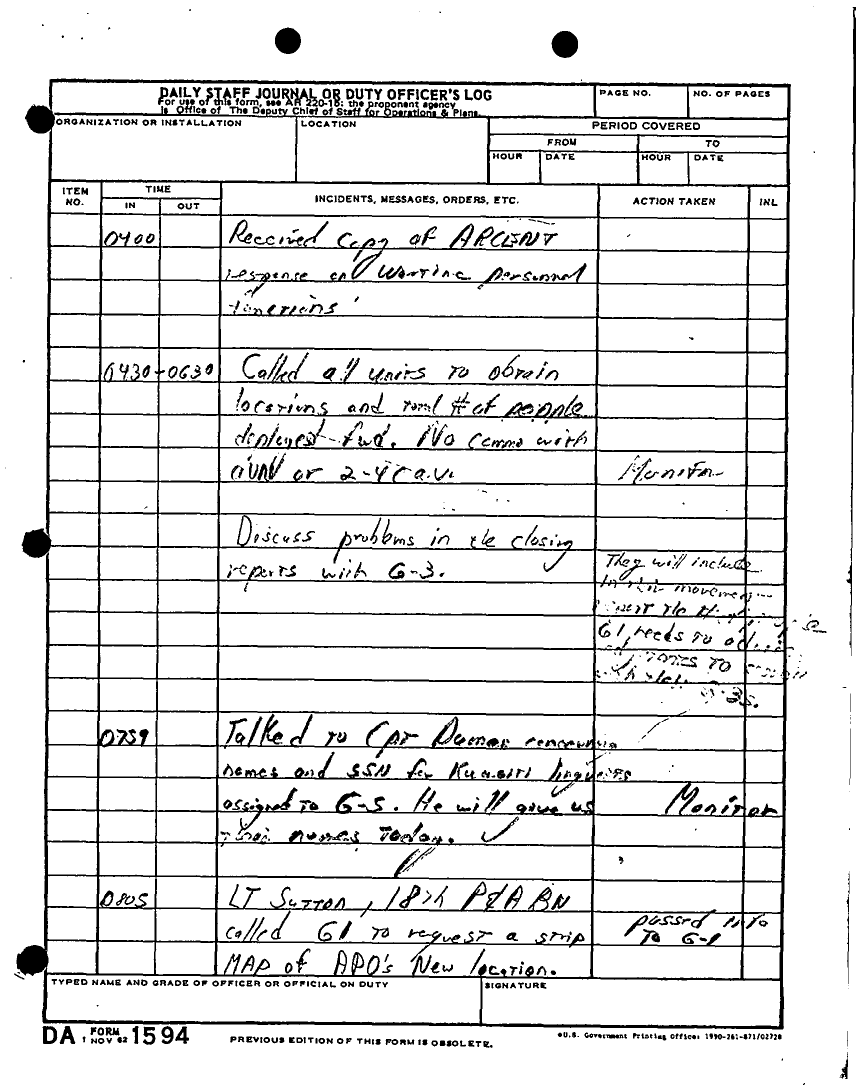 DAILY STAFF JOURNAL OR DUTY OFFICER'S LOG
For use of this form, see AR 220-15; the proponent agency
is Office of The Deputy Chief of Staff for Operations & Plans.
PAGE NO.
NO. OF PAGES
ORGANIZATION OR INSTALLATION
LOCATION
PERIOD COVERED
FROM
TO
HOUR
DATE
HOUR
DATE
ITEM NO.
TIME
IN
OUT
INCIDENTS, MESSAGES, ORDERS, ETC.
ACTION TAKEN
INL
0400 Received Copy of ARCENT
response on wartime personnel
functions
0430-0630 Called all units to obtain
locations and total # of people
deployed fwd. No commo with
or 2-4 Cav. Monitor
Discuss problems in the closing
reports with G-3.
They will include
in their movement
G1 needs to
to
G-3s.
0759 Talked to Cpt concerning
names and SSN for Kuwaiti linguists
assigned to G-5. He will give us Monitor
their names today. ✓
0805 LT Sutton, 18th P&A BN
called G1 to request a strip
MAP of APO's New location.
passed info
to G-1
TYPED NAME AND GRADE OF OFFICER OR OFFICIAL ON DUTY
SIGNATURE
DA FORM 1 NOV 62 1594
PREVIOUS EDITION OF THIS FORM IS OBSOLETE.
U.S. Government Printing Office: 1990-261-871/02728